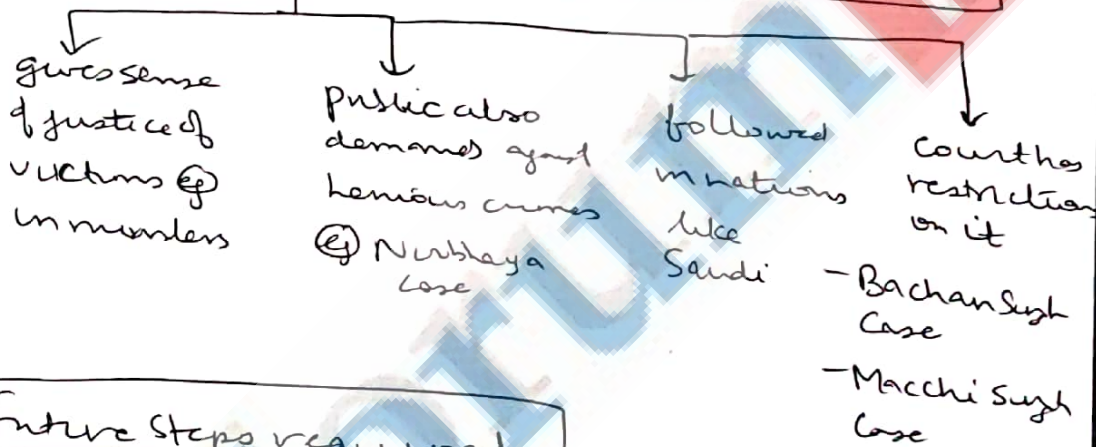 gives sense
of justice of
victims eg
in murders
public also
demands against
henious crimes
eg Nirbhaya
case
followed
in nations
like
Saudi
court has
restrictions
on it
- Bachan Singh
Case
- Macchi Singh
Case
Future Steps required
orum